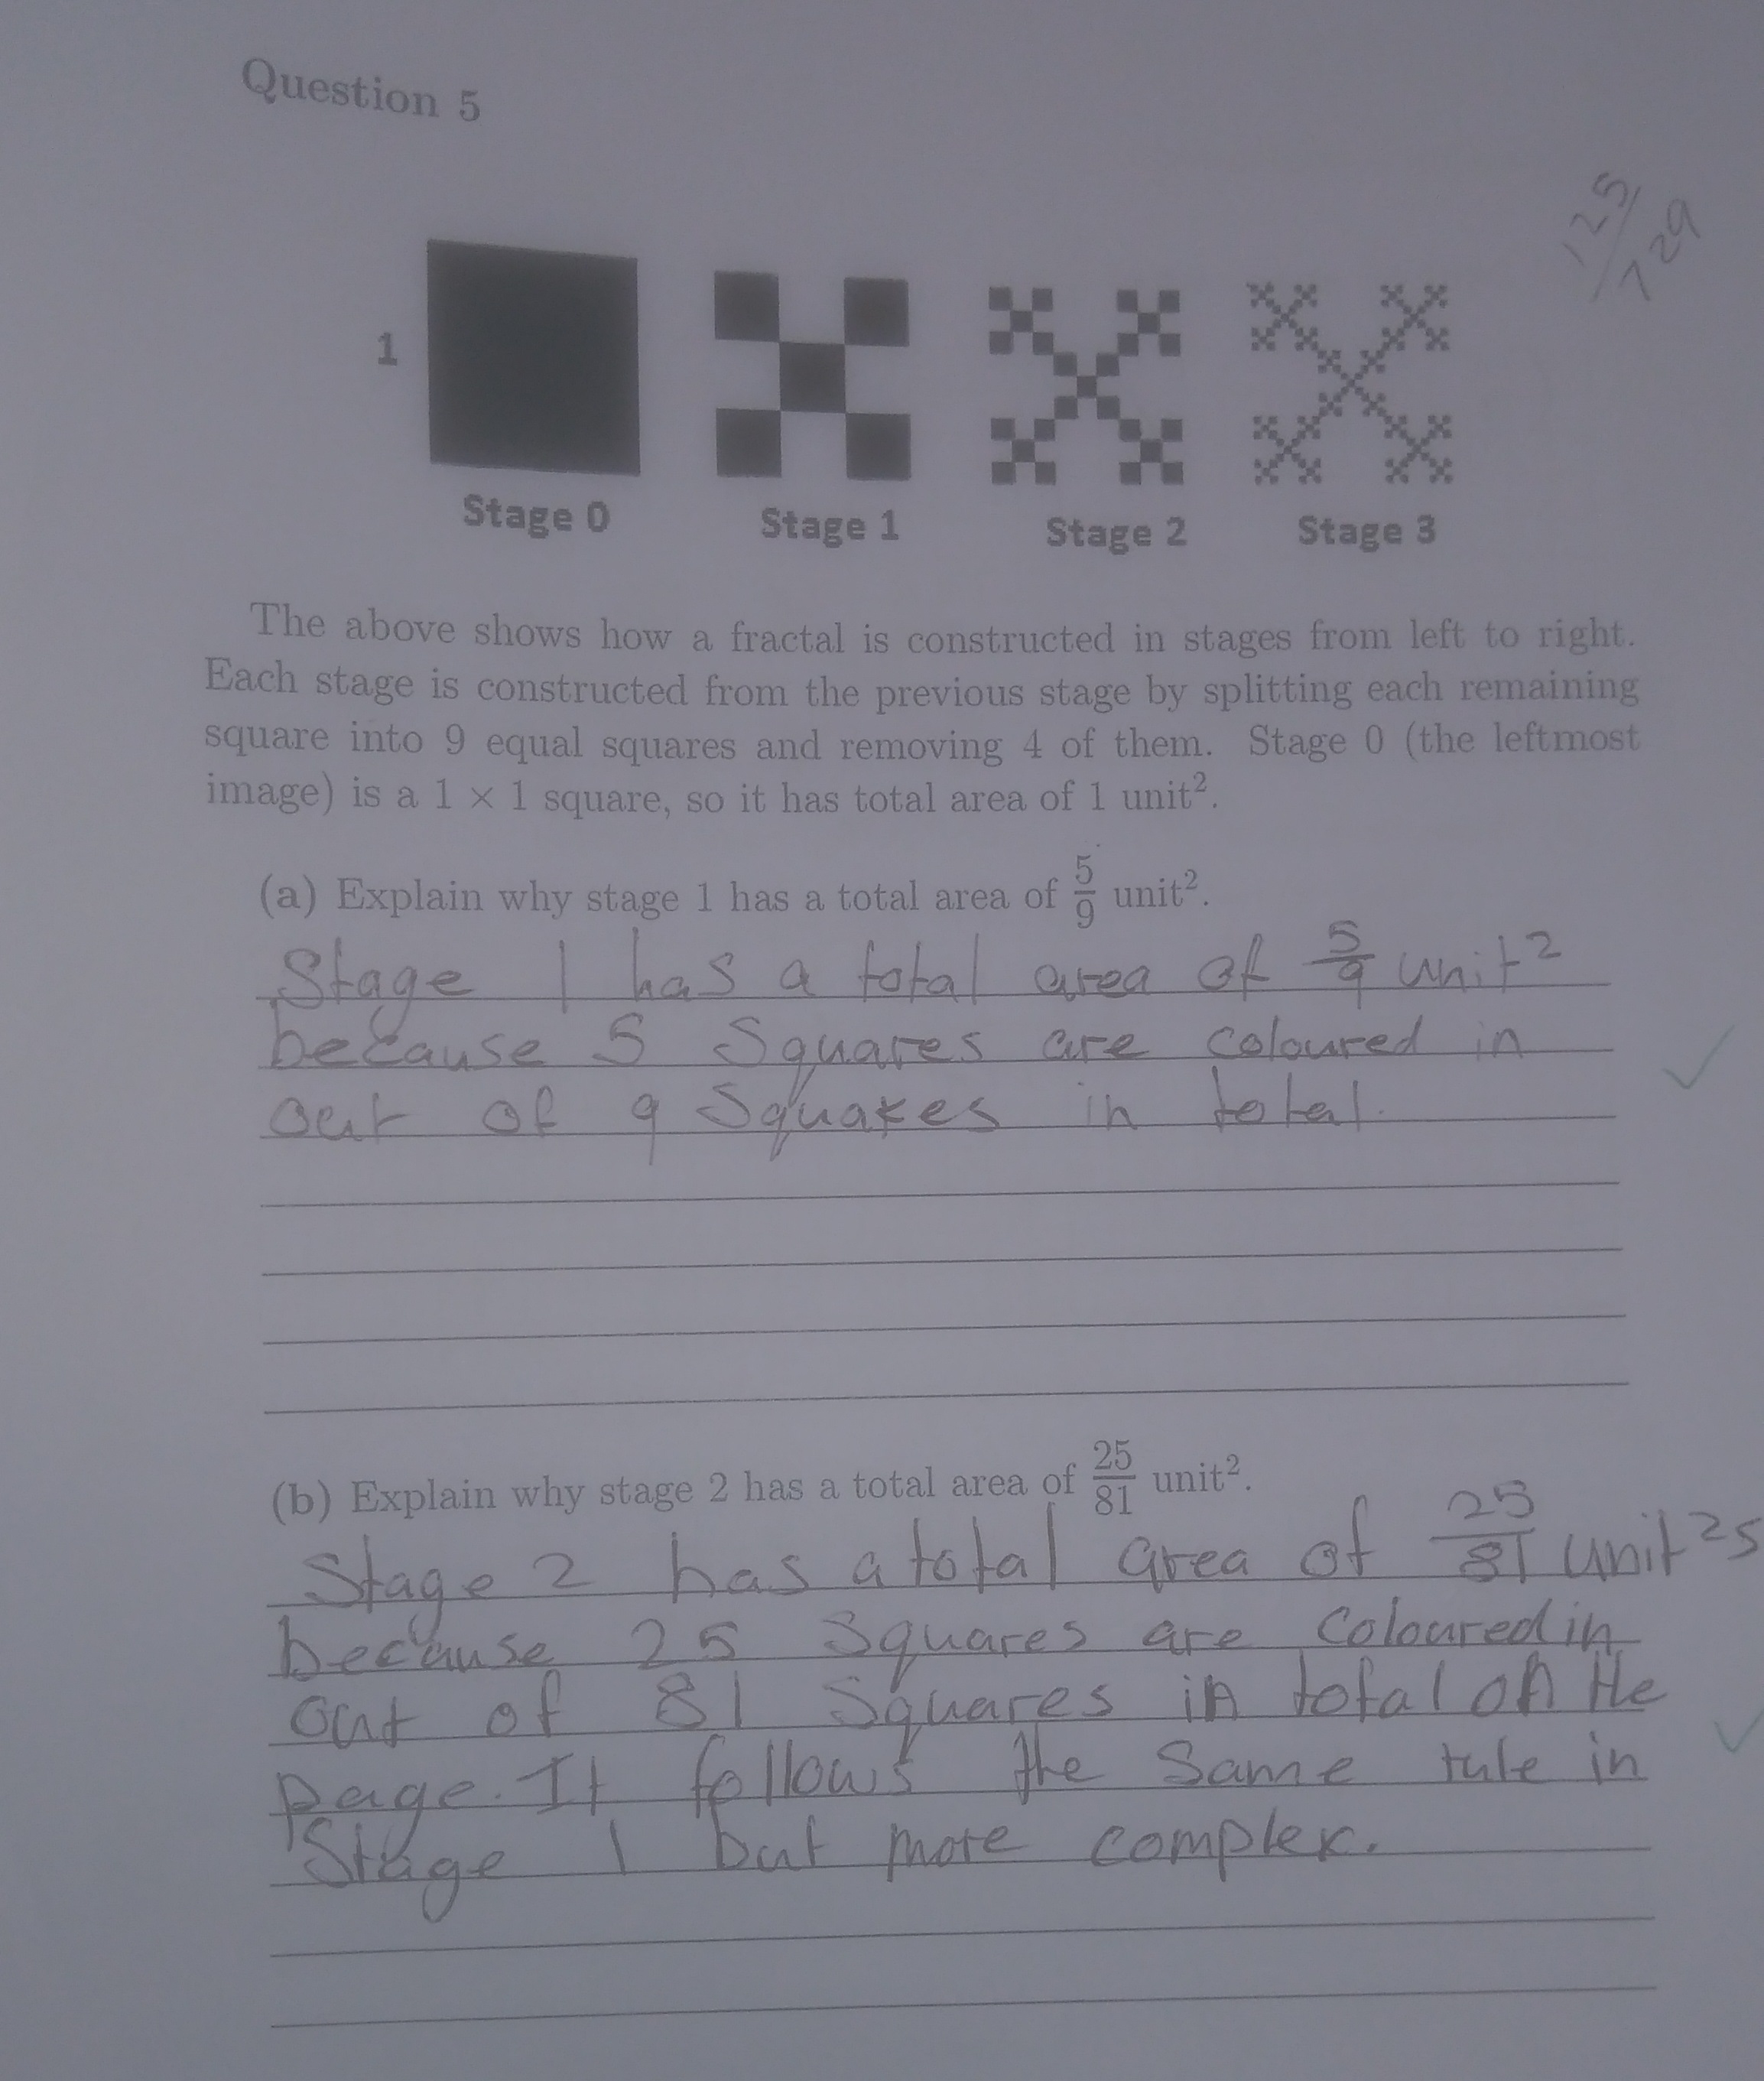 Question 5
125/729
1
Stage 0
Stage 1
Stage 2
Stage 3
The above shows how a fractal is constructed in stages from left to right.
Each stage is constructed from the previous stage by splitting each remaining
square into 9 equal squares and removing 4 of them. Stage 0 (the leftmost
image) is a 1 × 1 square, so it has total area of 1 unit².
(a) Explain why stage 1 has a total area of 5/9 unit².
Stage 1 has a total area of 5/9 unit²
because 5 Squares are coloured in
out of 9 Squares in total.
(b) Explain why stage 2 has a total area of 25/81 unit².
Stage 2 has a total area of 25/81 unit²s
because 25 Squares are coloured in
out of 81 Squares in total on the
page. It follows the same rule in
Stage 1 but more complex.